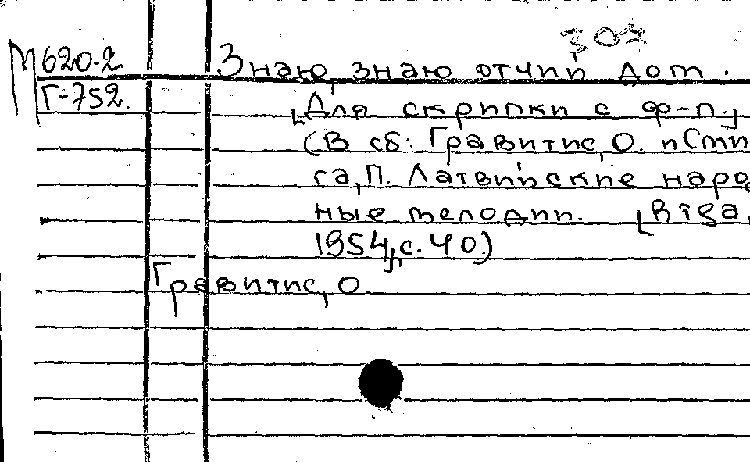 303
М620-2 Знаю, знаю отчий дом.
Г-752. [Для скрипки с ф-п.]
(В сб: Гравитис, О. и Сти
га, П. Латвийские народ
ные мелодии. [Riga,
1954], с. 40)
Гравитис, О.